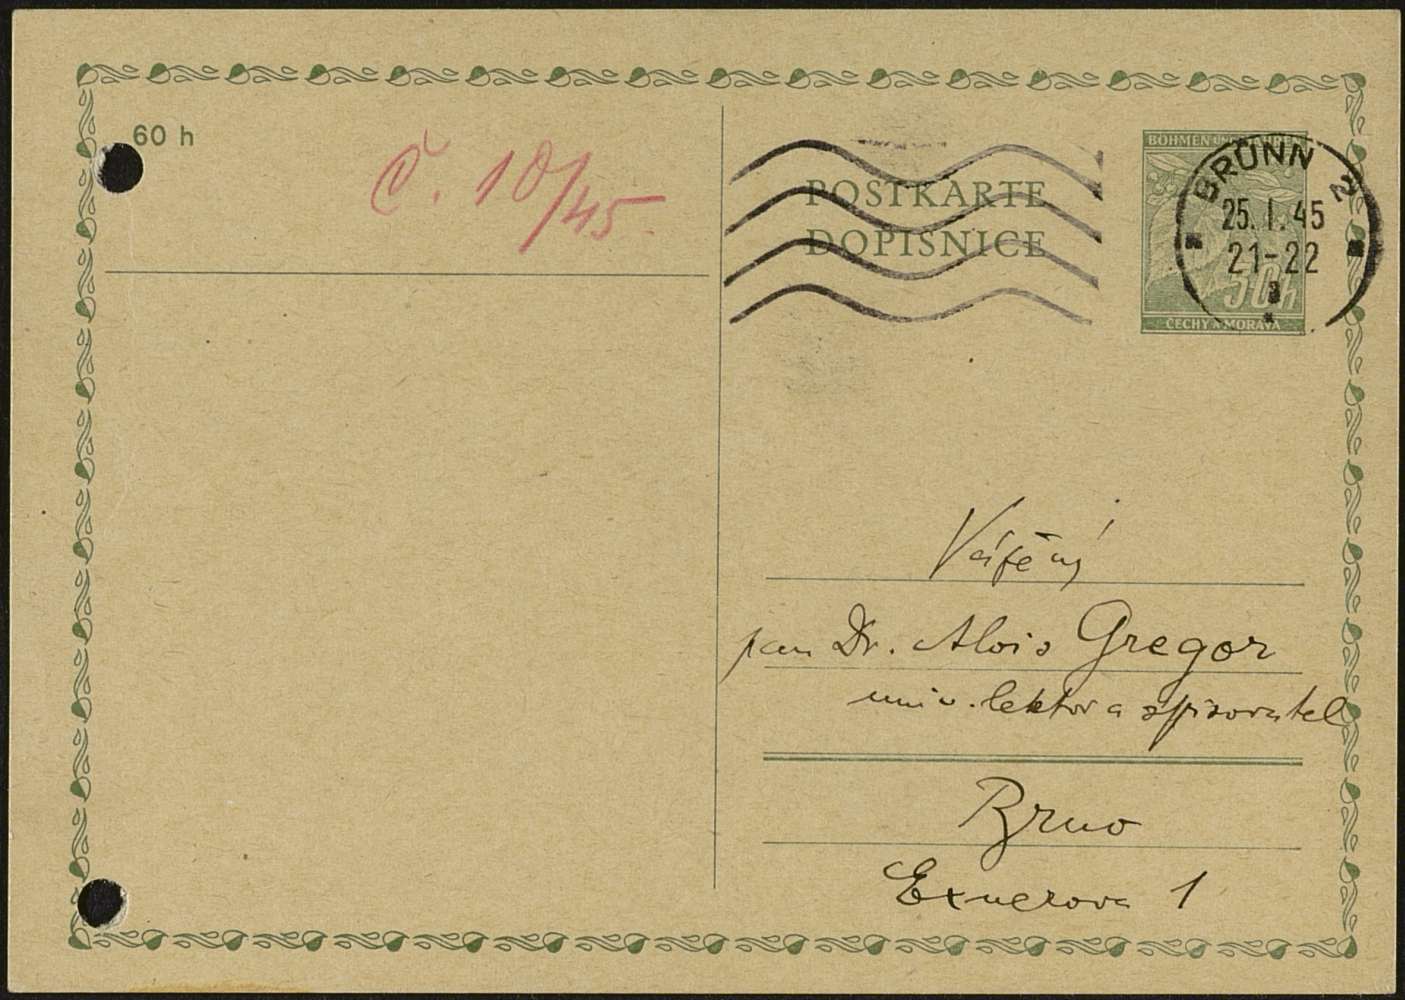 60 h
Č. 10/45
POSTKARTE
DOPISNICE
BÖHMEN UND MÄHREN
50h
ČECHY A MORAVA
BRÜNN 2
25. I. 45
21-22
Vážený
pan Dr. Alois Gregor
univ. lektor a spisovatel
Brno
Exnerova 1